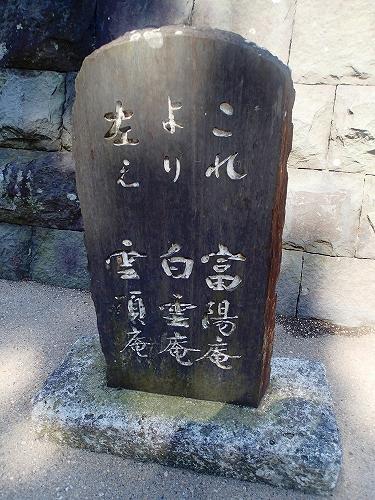 これ 富陽庵
より 白雲庵
左え 雲頂庵